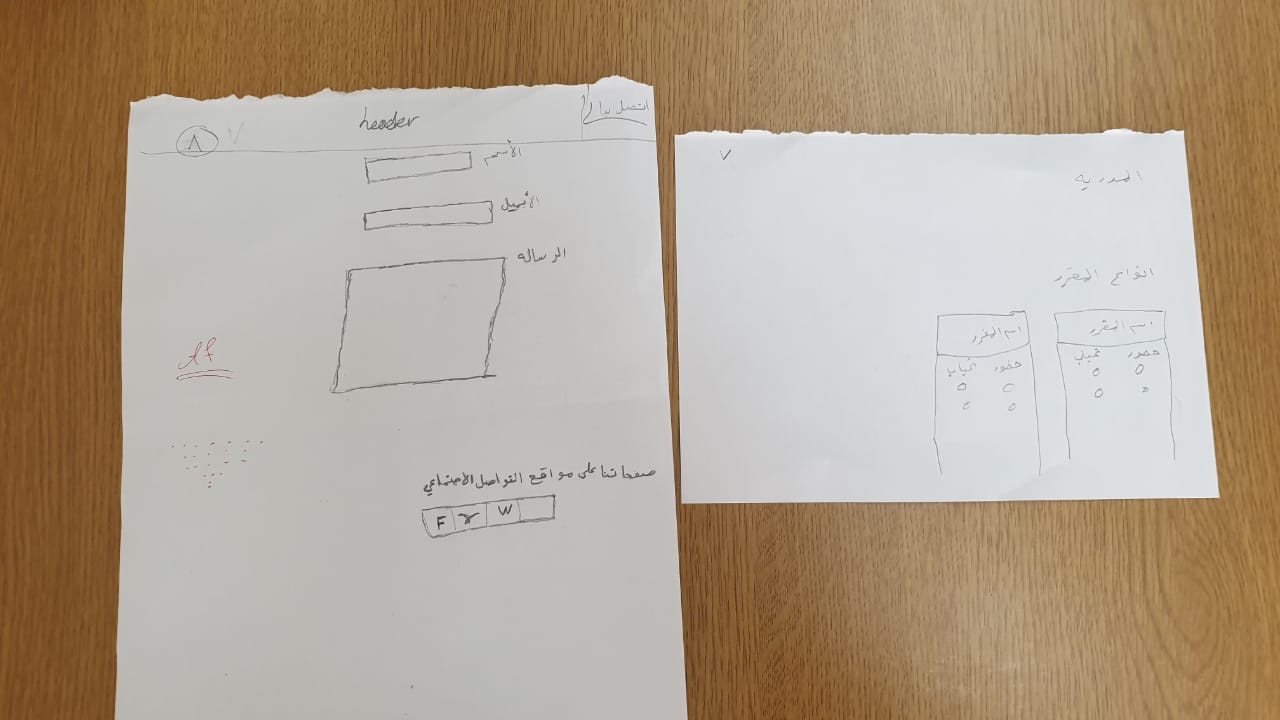 اتصل بنا
header
٨
٧
الأسم
الأيميل
الرساله
صفحاتنا على مواقع التواصل الاجتماعي
F
W
٧
انواع المقرر
اسم المقرر
حضور غياب
اسم المقرر
حضور غياب